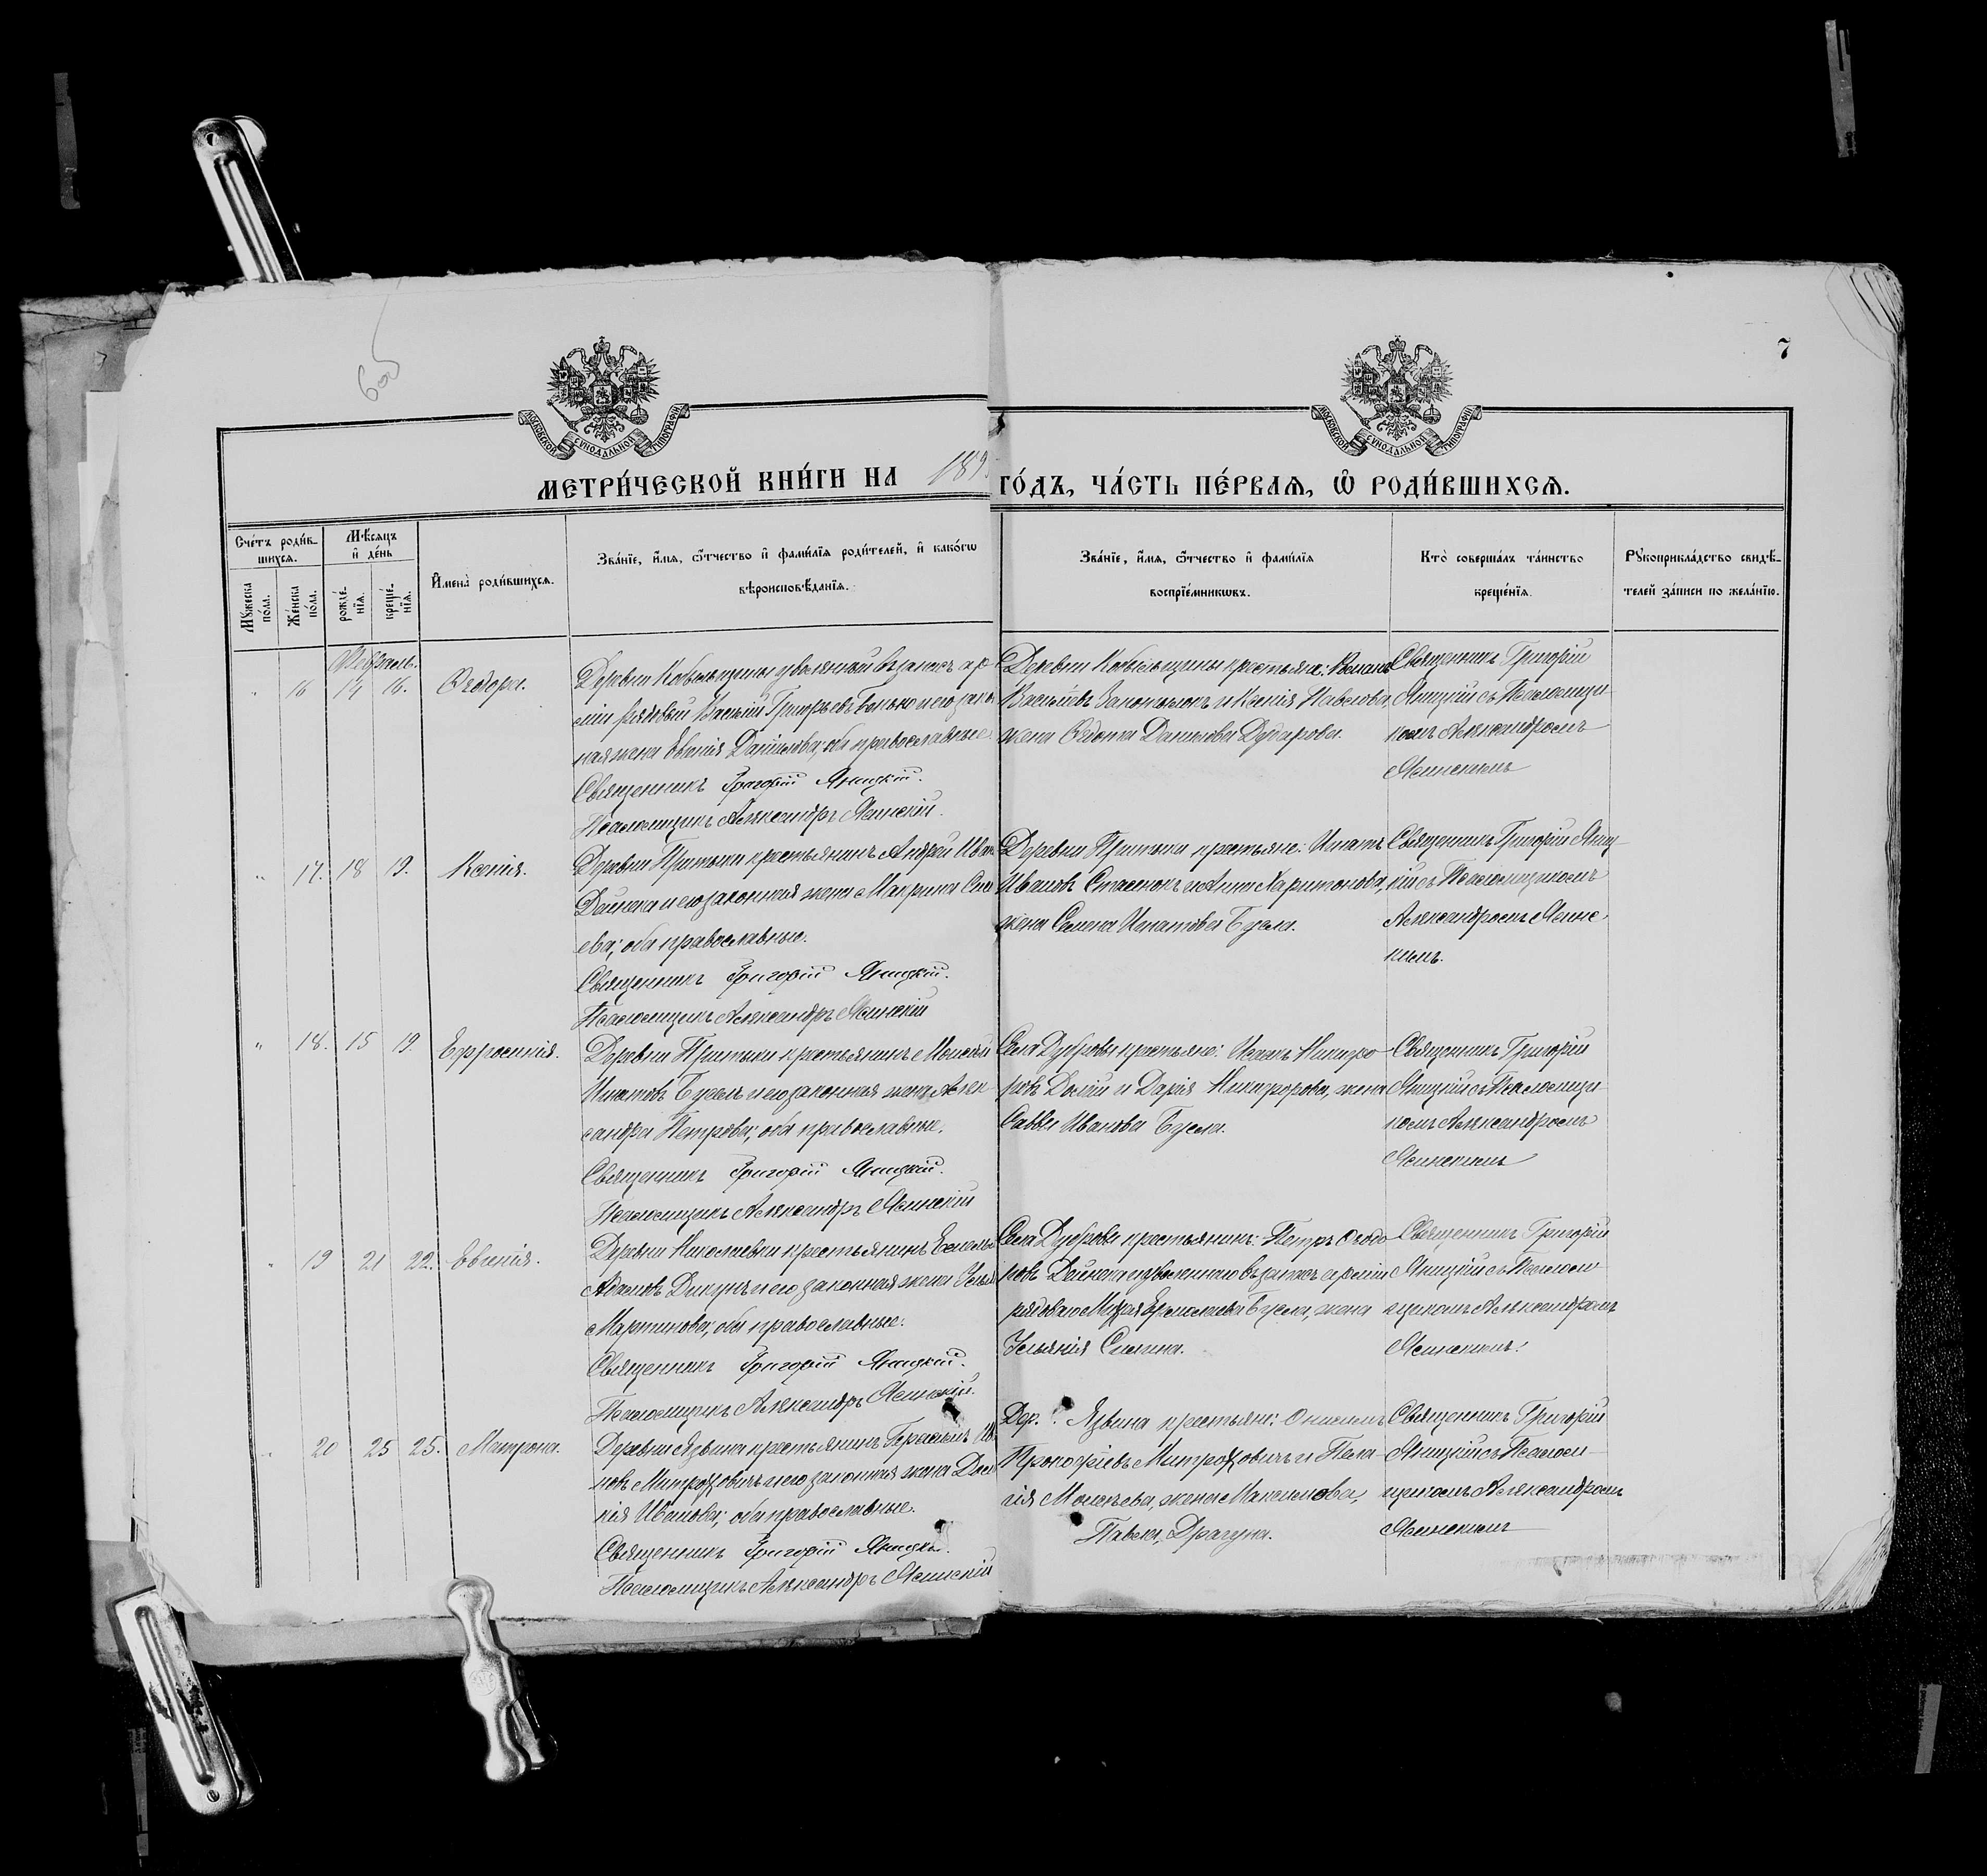 7
МОСКОВСКОЙ СУНОДАЛЬНОЙ ТИПОГРАФІИ
МОСКОВСКОЙ СУНОДАЛЬНОЙ ТИПОГРАФІИ
МЕТРИ́ЧЕСКОЙ КНИ́ГИ НА 189
ГО́ДЪ, ЧА́СТЬ ПЕ́РВАЯ, Ѡ РОДИ́ВШИХСЯ.
Сче́тъ роди́в-
шихся.
Мꙋ́жеска
по́ла.
Же́нска
по́ла.
Мѣ́сяцъ
и҆ де́нь
рожде́-
нїя.
креще́-
нїя.
И҆мена̀ роди́вшихся.
Зва́нїе, и҆́мя, ѻ҆́тчество и҆ фами́лїя роди́телей, и҆ како́гѡ
вѣроисповѣ́данїя.
Зва́нїе, и҆́мя, ѻ҆́тчество и҆ фами́лїя
воспрїе́мникѡвъ.
Кто̀ соверша́лъ та́инство
креще́нїя.
Рꙋкоприкла́дство свидѣ́-
телей за́писи по жела́нїю.
Февраль.
" 16 14 16. Ѳеодора.
Деревни Кобыльщины уволенный въ запасъ ар-
міи рядовый Василій Григорьевъ и его закон
ная жена Евгенія Данилова, оба православные.
Священникъ Григорій Яницкій.
Псаломщикъ Александръ Ясинскій.
Деревни Кобыльщины крестьяне: Романъ
Васильевъ и Ксенія Павлова,
жена Ѳедота Данилова Дударова.
Священникъ Григорій
Яницкій съ Псаломщи-
комъ Александромъ
Ясинскимъ
" 17. 18 19. Ксенія.
Деревни Притыки крестьянинъ Андрей Иван
Дайнека и его законная жена Макрина
ева; оба православные.
Священникъ Григорій Яницкій.
Псаломщикъ Александръ Ясинскій
Деревни Притыки крестьяне: Игнатъ
Ивановъ и Анна Харитонова,
жена Семена Игнатова Бусла.
Священникъ Григорій Яниц-
кій съ Псаломщикомъ
Александромъ Ясинс-
кимъ.
" 18. 15 19. Евфросинія.
Деревни Притыки крестьянинъ Моисей
Игнатовъ Буселъ и его законная жена Алек
сандра Петрова; оба православные.
Священникъ Григорій Яницкій.
Псаломщикъ Александръ Ясинскій
Села Дубровы крестьяне: Исаакъ Никифо-
ровъ и Дарія Никифорова, жена
Саввы Иванова Бусла.
Священникъ Григорій
Яницкій съ Псаломщи-
комъ Александромъ
Ясинскимъ
" 19 21 22. Евгенія.
Деревни Николаевки крестьянинъ Емельян
Адамовъ Дикунъ и его законная жена
Мартинова, оба православные.
Священникъ Григорій Яницкій.
Псаломщикъ Александръ Ясинскій.
Села Дубровы крестьянинъ: Петръ Ѳеодо-
ровъ Дайнека и уволеннаго въ запасъ арміи
рядоваго Бусла, жена
Ульянія Силина.
Священникъ Григорій
Яницкій съ Псаломщ-
щикомъ Александромъ
Ясинскимъ.
" 20 25 25. Матрона.
Деревни Язвина крестьянинъ Герасимъ Ив
новъ Митрофовичъ и его законная жена
кія Иванова; оба православные.
Священникъ Григорій Яницкій.
Псаломщикъ Александръ Ясинскій
Дер. Язвина крестьяне: Онисимъ
Прокофіевъ Митрофовичъ и Пела-
гія Моисеева, жена Максимова,
Павла, Драгуна.
Священникъ Григорій
Яницкій съ Псалом-
щикомъ Александромъ
Ясинскимъ